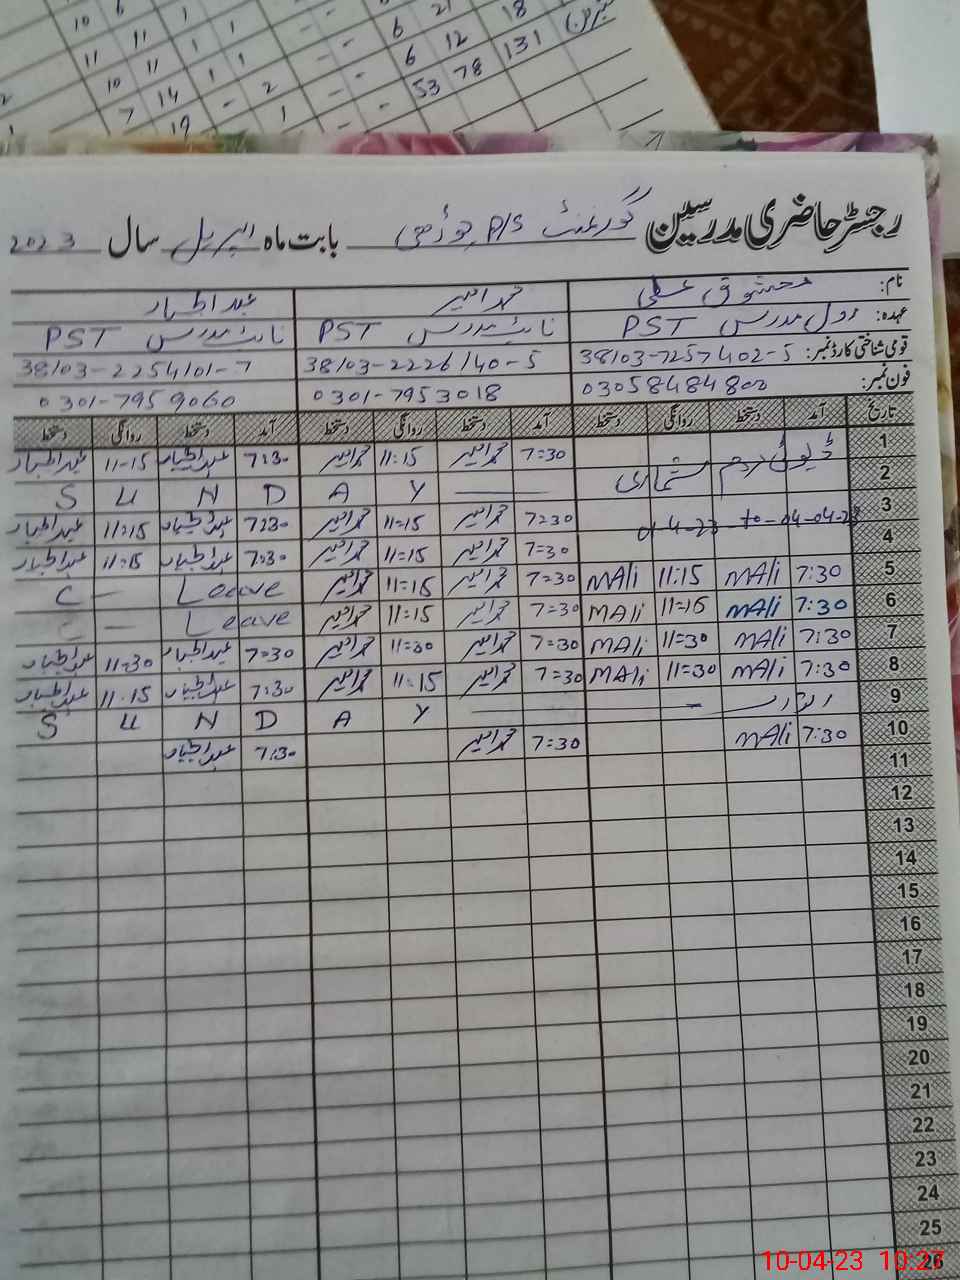 10 6 1 - - 6 21 18
11 11 1 1 - - 6 12 131
10 11 1 2 - - 53 78
7 14 - 1 - -
19
رجسٹر حاضری مدرسین گورنمنٹ P/S بابت ماہ اپریل سال 2023
نام: معشوق علی محمد امیر عبدالجبار
عہدہ: PST مدرس PST نائب مدرس PST نائب مدرس
قومی شناختی کارڈ نمبر: 38103-7257402-5 38103-2226140-5 38103-2254101-7
فون نمبر: 03058484800 0301-7953018 0301-7959060
تاریخ آمد دستخط روانگی دستخط آمد دستخط روانگی دستخط آمد دستخط روانگی دستخط
1 ڈیوٹی مردم شماری 7=30 محمد امیر 11:15 محمد امیر 7:30 عبدالجبار 11-15 عبدالجبار
2 S U N D A Y
3 01-4-23 to 04-04-23 7=30 محمد امیر 11=15 محمد امیر 7:30 عبدالجبار 11:15 عبدالجبار
4 7=30 محمد امیر 11=15 محمد امیر 7:30 عبدالجبار 11:15 عبدالجبار
5 7:30 MAli 11:15 MAli 7=30 محمد امیر 11=15 محمد امیر Leave - C
6 7:30 MAli 11=15 MAli 7=30 محمد امیر 11=15 محمد امیر Leave - C
7 7:30 MAli 11=30 MAli 7=30 محمد امیر 11=30 محمد امیر 7=30 عبدالجبار 11=30 عبدالجبار
8 7:30 MAli 11=30 MAli 7=30 محمد امیر 11=15 محمد امیر 7:30 عبدالجبار 11:15 عبدالجبار
9 اتوار S U N D A Y
10 7:30 MAli 7=30 محمد امیر 7:30 عبدالجبار
11
12
13
14
15
16
17
18
19
20
21
22
23
24
25
26
10-04-23 10:27